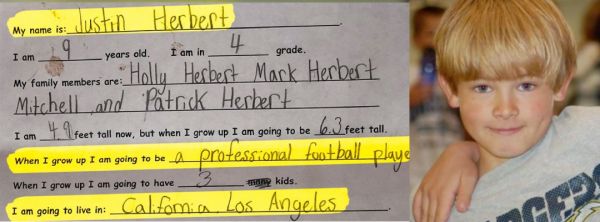 My name is: Justin Herbert.
I am 9 years old. I am in 4 grade.
My family members are: Holly Herbert Mark Herbert
Mitchell and Patrick Herbert
I am 4.9 feet tall now, but when I grow up I am going to be 6.3 feet tall.
When I grow up I am going to be a professional football playe
When I grow up I am going to have 3 many kids.
I am going to live in: California, Los Angeles.